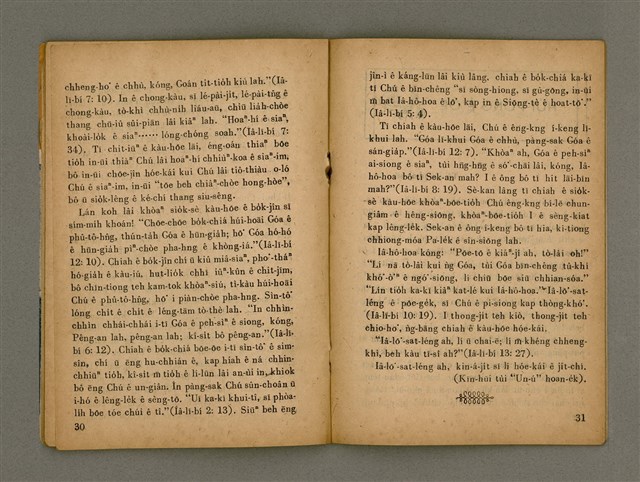 chheng-ho͘ ê chhù, kóng, Goán tit-tio̍h kiù lah.”(Iâ-
lī-bí 7: 10). In ê chong-kàu, sī lé-pài-ji̍t, lé-pài-tn̂g ê
chong-kàu, tò-khì chhù-nih liáu-āu, chiū lia̍h-chòe
thang chū-iû sûi-piān lâi kiâⁿ lah. “Hoaⁿ-hí ê siaⁿ,
khoài-lo̍k ê siaⁿ……lóng-chóng soah.”(Iâ-lī-bí 7:
34). Tī chit-iūⁿ ê kàu-hōe lāi, éng-oán thiaⁿ bōe
tio̍h in-ūi thiàⁿ Chú lâi hoaⁿ-hí chhiúⁿ-koa ê siaⁿ-im,
bô in-ūi chōe-jîn hóe-kái kui Chú lâi tiô-thiàu o-ló
Chú ê siaⁿ-im, in-ūi “tōe beh chiâⁿ-chòe hong-hòe”,
bô ū sio̍k-lêng ê kè-chi thang siu-sêng.
Lán koh lâi khòaⁿ sio̍k-sè kàu-hōe ê bo̍k-jîn sī
sím-mih khoán! “Chōe-chōe bo̍k-chiá húi-hoāi Góa ê
phû-tô-hn̂g, thún-ta̍h Góa ê hūn-gia̍h; hō͘ Góa hó-hó
ê hūn-gia̍h piⁿ-chòe pha-hng ê khòng-iá.”(Iâ-lī-bí
12: 10). Chiah ê bo̍k-jîn chí ū kiù miâ-siaⁿ, pho͘-thâⁿ
hó-gia̍h ê kàu-iú, hut-lio̍k chhī iûⁿ-kûn ê chit-jīm,
bô chin-tiong teh kam-tok khòaⁿ-siú, tì-kàu húi-hoāi
Chú ê phû-tô-hn̂g, hō͘ i piàn-chòe pha-hng. Sìn-tô͘
lóng chi̍t ê chi̍t ê lêng-tām tò-thè lah. “In chhìn-
chhìn chhái-chhái i-tī Góa ê peh-sìⁿ ê siong, kóng,
Pêng-an lah, pêng-an lah; kî-si̍t bô pêng-an.”(Iâ-lī-
bí 6: 12). Chiah ê bo̍k-chiá bōe-ōe i-tī sìn-tô͘ ê sim-
sîn, chí ū ēng hu-chhiân ê, kap hiah ê ná chhin-
chhiūⁿ tio̍h, kî-si̍t m̄ tio̍h ê lí-lūn lâi an-ùi in, khiok
bô ēng Chú ê un-giân. In pàng-sak Chú sún-choân ū
i-hó ê lêng-le̍k ê sêng-tō. “Uī ka-kī khui-tí, sī phòa-
li̍h bōe tóe chúi ê tí.”(Iâ-lī-bí 2: 13). Siūⁿ beh ēng
30
jîn-ì ê káng-lūn lâi kiù lâng. chiah ê bo̍k-chiá ka-kī
tī Chú ê bīn-chêng “sī sòng-hiong, sī gû-gōng, in-ūi
m̄ bat Iâ-hô-hoa ê lō͘, kap in ê Siōng-tè ê hoat-tō͘.”
(Iâ-lī-bí 5: 4).
Tī chiah ê kàu-hōe lāi, Chú ê êng-kng í-keng lī-
khui lah. “Góa lī-khui Góa ê chhù, pàng-sak Góa ê
sán-gia̍p.”(Iâ-lī-bí 12: 7). “Khòaⁿ ah, Góa ê peh-sìⁿ
ai-siong ê siaⁿ, tùi hn̄g-hn̄g ê só͘-chāi lâi, kóng, Iâ-
hô-hoa bô tī Sek-an mah? I ê ông bô tī hit lāi-bīn
mah?”(Iâ-lī-bí 8: 19). Sè-kan lâng tī chiah ê sio̍k-
sè kàu-hōe khòaⁿ-bōe-tio̍h Chú êng-kng bí-lē chun-
giâm ê hêng-siōng, khòaⁿ-bōe-tio̍h I ê sèng-kiat
kap lêng-le̍k. Sek-an ê ông í-keng bô tī hia, kî-tiong
chhiong-móa Pa-le̍k ê sîn-siōng lah.
Iâ-hô-hoa kóng: “Pōe-tō ê kiáⁿ-jî ah, tò-lâi oh!”
“Lí nā tò-lâi kui ǹg Góa, tùi Góa bīn-chêng tû-khì
khó͘-ò͘ⁿ ê ngó͘-siōng, lí chiū bōe siū chhian-sóa.”
“Lín tio̍h ka-kī kiâⁿ kat-lé kui Iâ-hô-hoa.” “Iâ-lō͘-sat-
léng ê pōe-ge̍k, sī Chú ê pi-siong kap thòng-khó͘.
(Iâ-lī-bí 10: 19). I thong-ji̍t teh kiò, thong-ji̍t teh
chio-ho͘, ǹg-bāng chiah ê kàu-hōe hóe-kái.
“Iâ-lō͘-sat-léng ah, lí ū chai-ē; lí m̄ khéng chheng-
khì, beh kàu tī-sî ah?”(Iâ-lī-bí 13: 27).
Iâ-lō͘-sat-léng ah, kin-á-ji̍t sī lí hóe-kái ê ji̍t-chí.
(Kin-kùi tùi “Un-ú” hoan-e̍k).
31